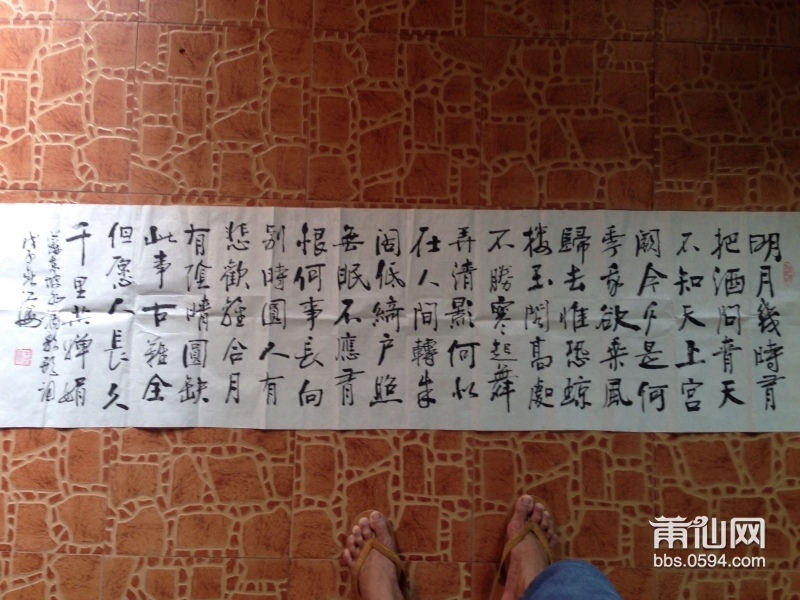 明月幾時有
把酒问青天
不知天上宫
阙今夕是何
年我欲乘風
歸去惟恐琼
楼玉阁高處
不勝寒起舞
弄清影何似
在人间轉朱
阁低綺户照
無眠不應有
恨何事長向
别時圓人有
悲歡離合月
有陰晴圓缺
此事古難全
但愿人長久
千里共嬋娟
蘇東坡水调歌头词
戊子秋
莆仙网
bbs.0594.com